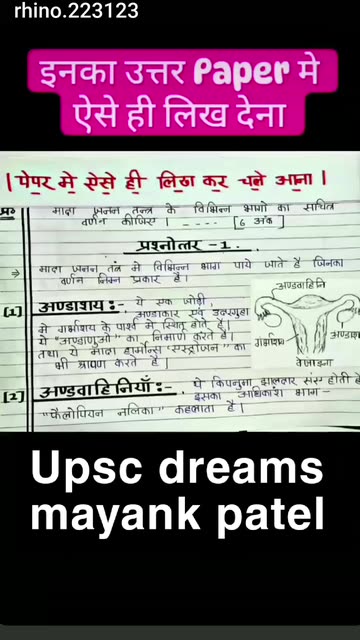 rhino.223123
इनका उत्तर Paper मे
ऐसे ही लिख देना
। पेपर मे ऐसे ही लिख कर चले आना ।
प्र० मादा जनन तन्त्र के विभिन्न भागों का सचित्र
वर्णन कीजिए । - - - - [ 6 अंक ]
प्रश्नोत्तर -1.
⇒ मादा जनन तंत्र मे विभिन्न भाग पाये जाते हैं जिनका
वर्णन निम्न प्रकार है।
[1] अण्डाशय :- ये एक जोड़ी,
अण्डाकार एवं उदरगुहा
मे गर्भाशय के पार्श्व मे स्थित होते हैं।
ये "अण्डाणुओ" का निर्माण करते हैं
तथा ये मादा हार्मोन्स "एस्ट्रोजन" का
भी श्रावण करते हैं।
अण्डवाहिनि
गर्भाशय
अण्डाश
[2] अण्डवाहिनियाँ :- ये किपनुमा झालदार संरचना होती है
इसका अधिकांश भाग-
"फैलोपियन नलिका" कहलाता है।
Upsc dreams
mayank patel